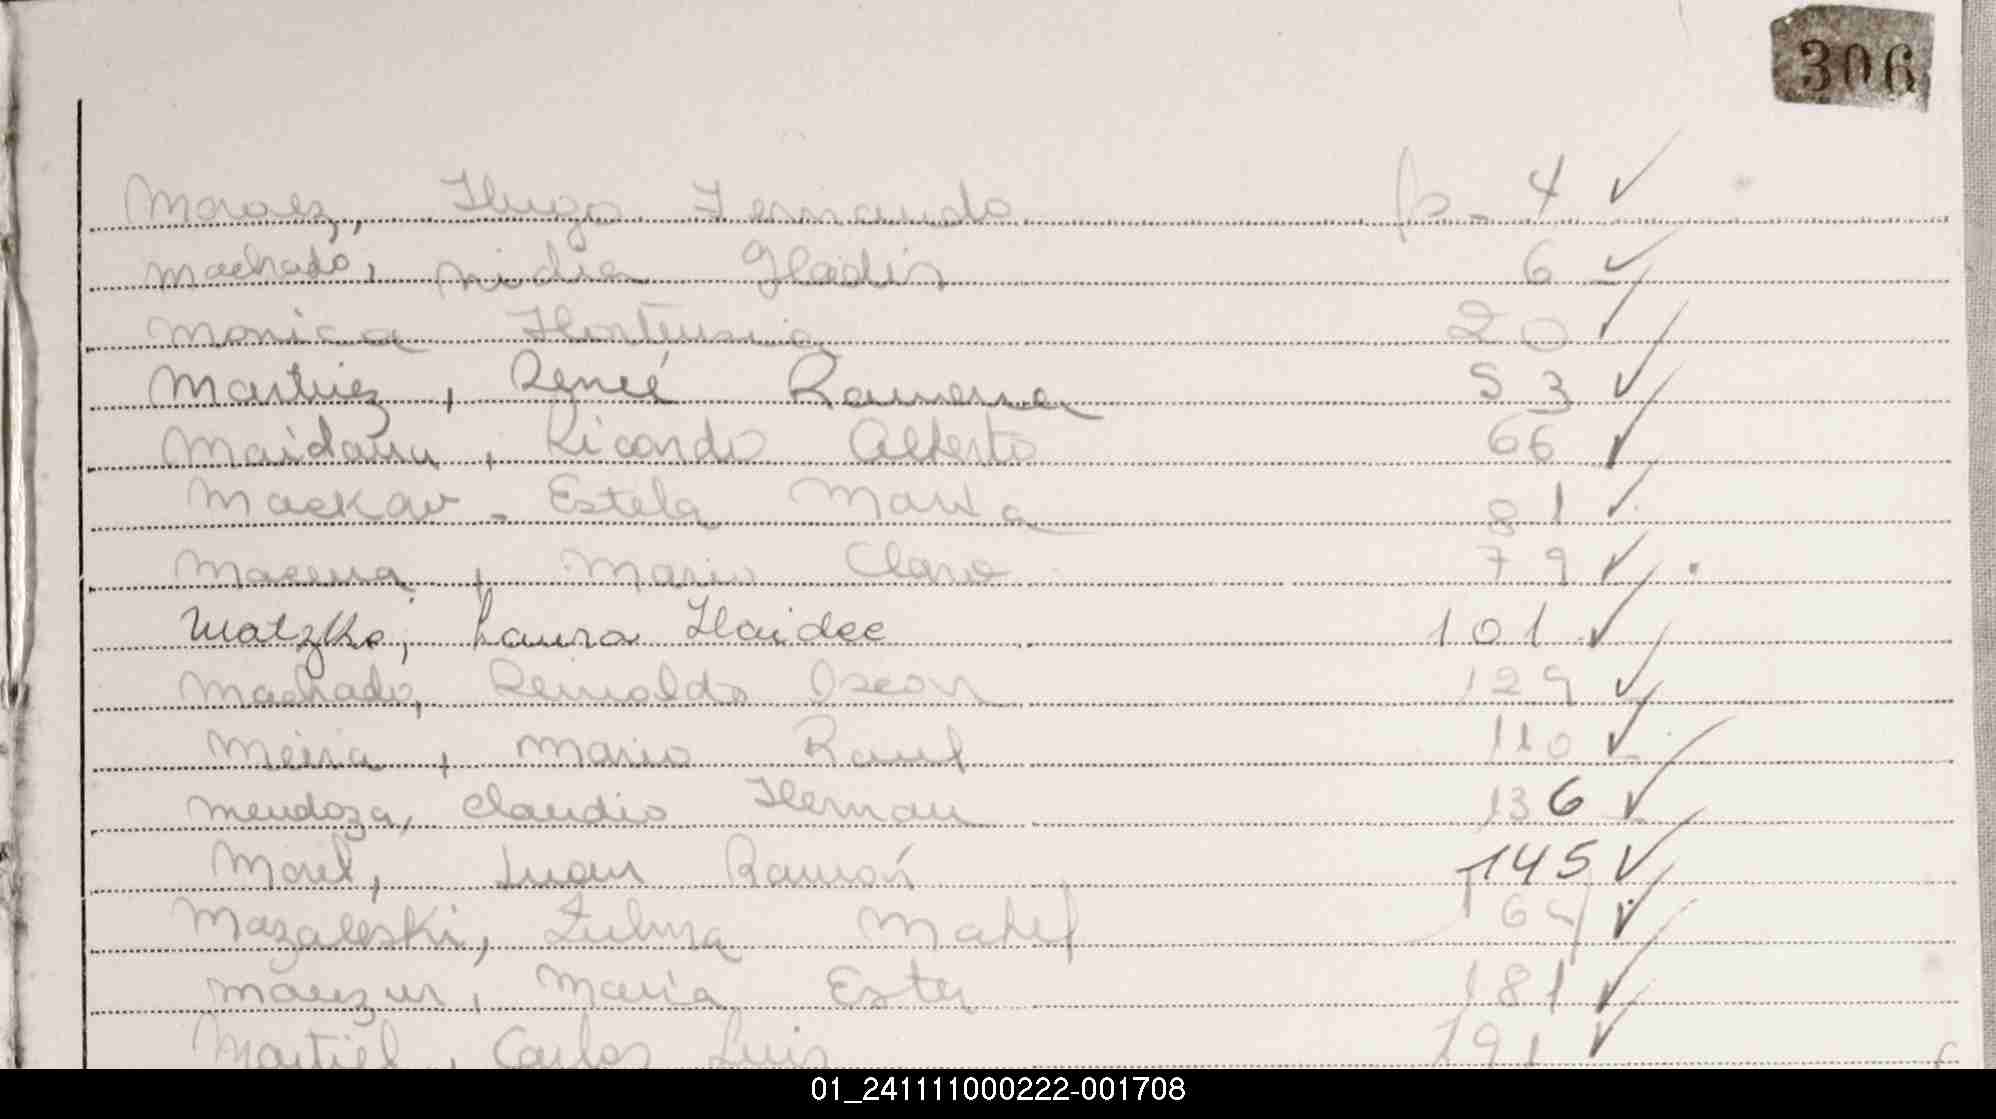 306
Moraez, Hugo Fernando p. 4 ✓
Machado, Nidia Gladis 6 ✓
Monica Hortensia 20 ✓
Martinez, René Ramona 53 ✓
Maidana, Ricardo Alberto 66 ✓
Mackav - Estela Maria 81 ✓
Macena, Mario Claro 79 ✓
Matzke, Laura Haidee 101 ✓
Machado, Reinaldo Oscar 129 ✓
Meira, Mario Raul 110 ✓
Mendoza, Claudio Hernan 136 ✓
Morel, Juan Ramón 145 ✓
Mazaleski, Zulma Mabel 164 ✓
Maria Ester 181 ✓
Martiel, Carlos Luis 191 ✓
01_241111000222-001708